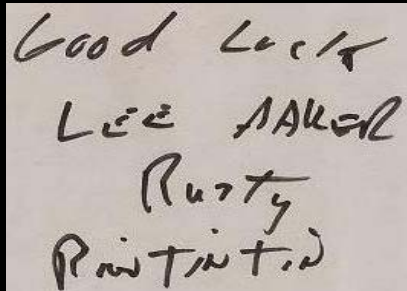 Good Luck
LEE AAKER
Rusty
RinTinTin